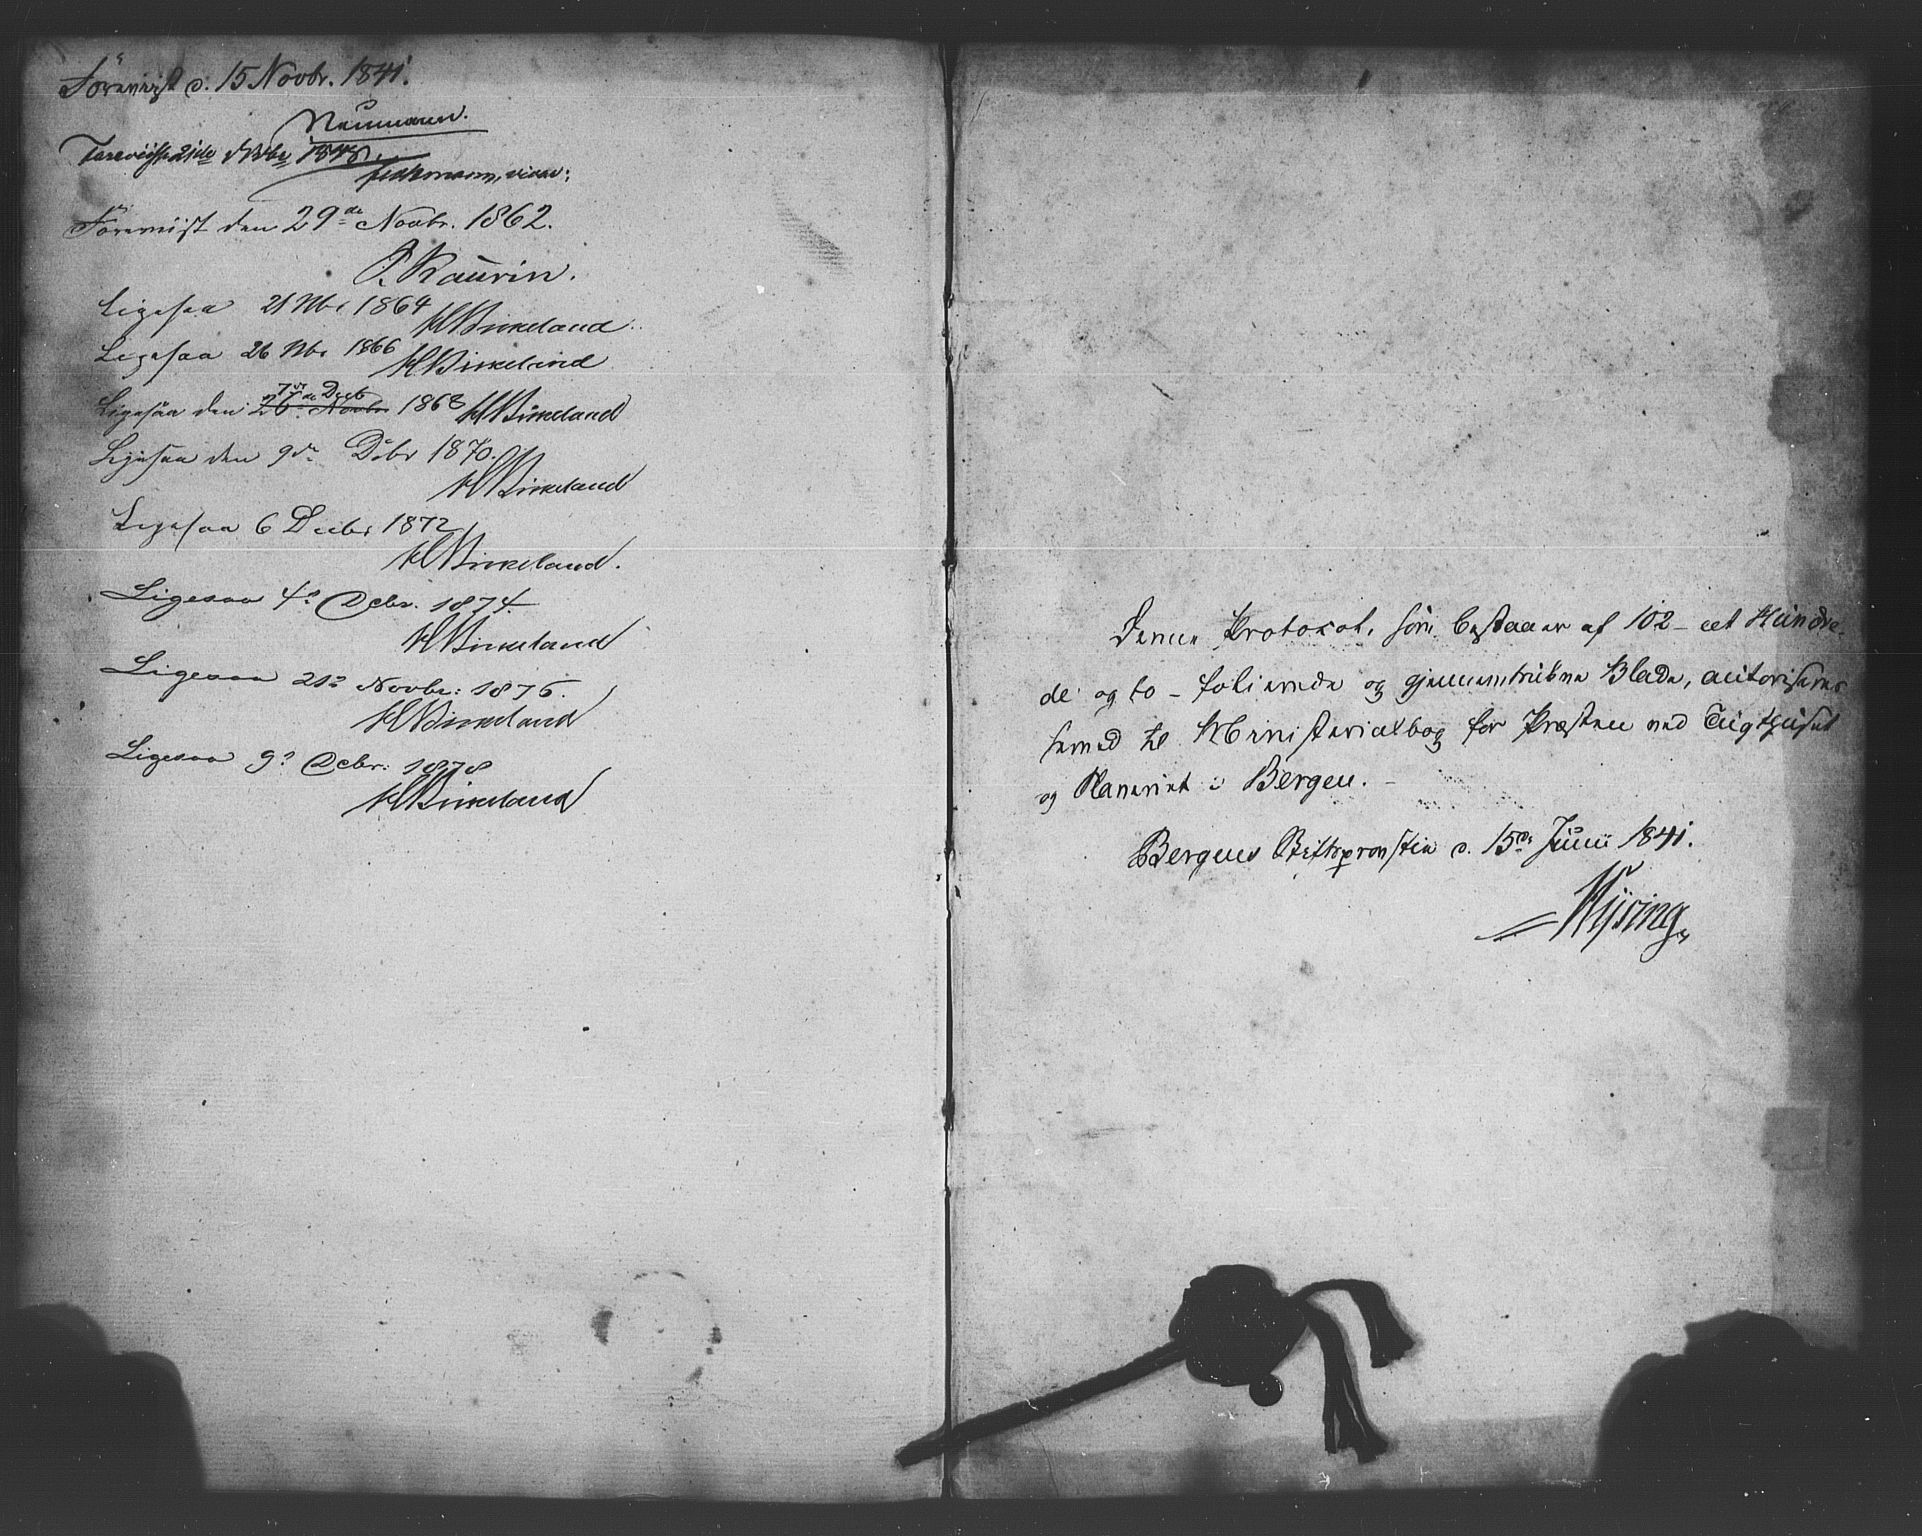 Foreviist d. 15 Novbr. 1841.
Neumann.
Foreviist 21de Novbr 1848.
Foreviist den 29de Novbr. 1862.
P. Kaurin.
Ligesaa 21 Nbr 1864
H Birkeland
Ligesaa 26 Nbr 1866
H Birkeland
7de Decb
Ligesaa den 26de Novbr 1868 H Birkeland
Ligesaa den 9de Dcbr 1870.
H Birkeland
Ligesaa 6 Decbr 1872
H Birkeland.
Ligesaa 4de Dcbr. 1874.
H Birkeland
Ligesaa 21de Novbr: 1876.
H Birkeland
Ligesaa 9de Dcbr: 1878
H Birkeland
Denne Protokol, som bestaaer af 102 - eet Hundre-
de og to - folierede og gjennemtrukne Blade, autoriseres
herved til Ministerialbog for Præsten ved Tugthuset
og Slaveriet i Bergen. -
Bergens Stiftsprovstie d. 15de Junii 1841.
Kysing